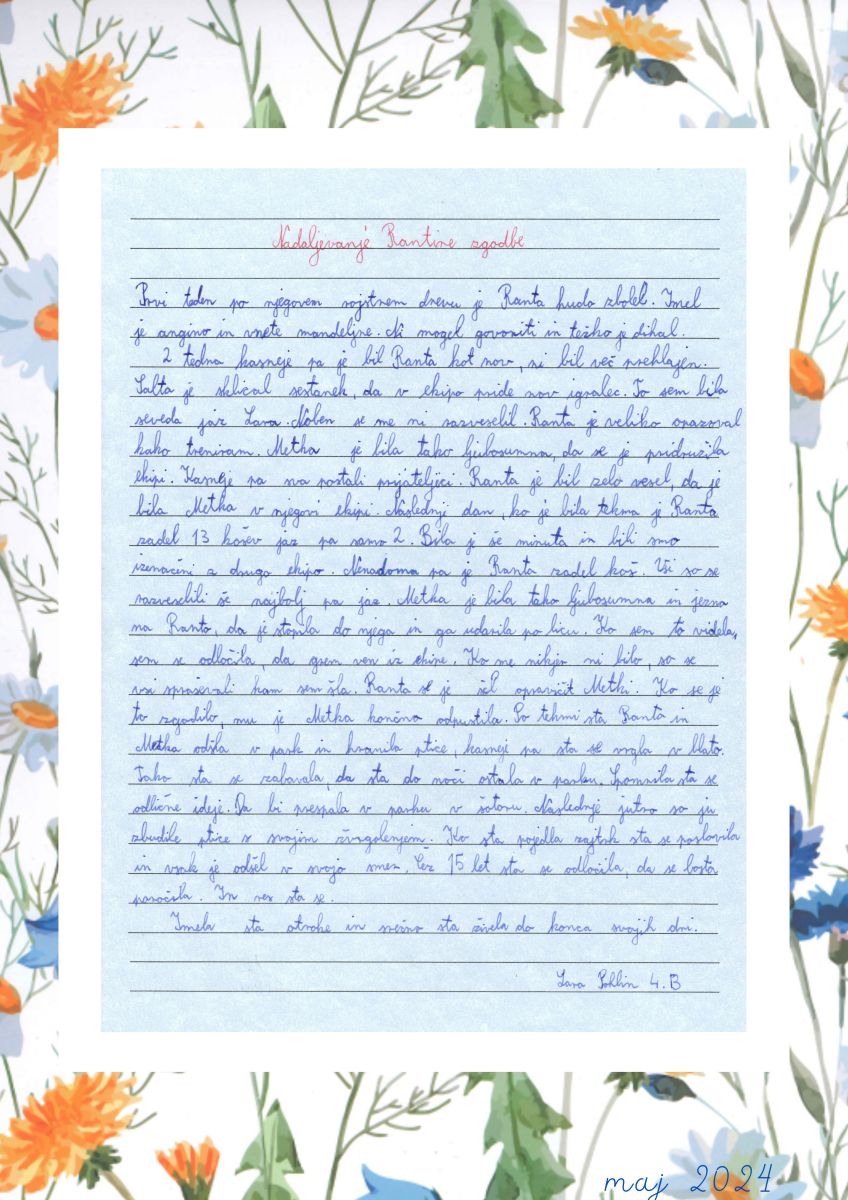 Nadaljevanje Rantine zgodbe
Prvi teden po njegovem rojstnem dnevu je Ranta hudo zbolel. Imel
je angino in vnete mandeljne. Ni mogel govoriti in težko je dihal.
2 tedna kasneje pa je bil Ranta kot nov, ni bil več prehlajen.
Salta je sklical sestanek, da v ekipo pride nov igralec. To sem bila
seveda jaz Lara. Noben se me ni razveselil. Ranta je veliko opazoval
kako treniram. Metka je bila tako ljubosumna, da se je pridružila
ekipi. Kasneje pa sva postali prijateljici. Ranta je bil zelo vesel, da je
bila Metka v njegovi ekipi. Naslednji dan, ko je bila tekma je Ranta
zadel 13 košev jaz pa samo 2. Bila je še minuta in bili smo
izenačeni z drugo ekipo. Nenadoma pa je Ranta zadel koš. Vsi so se
razveselili še najbolj pa jaz. Metka je bila tako ljubosumna in jezna
na Ranto, da je stopila do njega in ga udarila po licu. Ko sem to videla,
sem se odločila, da grem ven iz ekipe. Ko me nikjer ni bilo, so se
vsi spraševali kam sem šla. Ranta se je šel opravičit Metki. Ko se je
to zgodilo, mu je Metka končno odpustila. Po tekmi sta Ranta in
Metka odšla v park in hranila ptice, kasneje pa sta se vrgla v blato.
Tako sta se zabavala, da sta do noči ostala v parku. Spomnila sta se
odlične ideje. Da bi prespala v parku v šotoru. Naslednje jutro so ju
zbudile ptice s svojim žvrgolenjem. Ko sta pojedla zajtrk sta se poslovila
in vsak je odšel v svojo smer. Čez 15 let sta se odločila, da se bosta
poročila. In res sta se.
Imela sta otroke in srečno sta živela do konca svojih dni.
Lara Pohlin 4. B
maj 2024